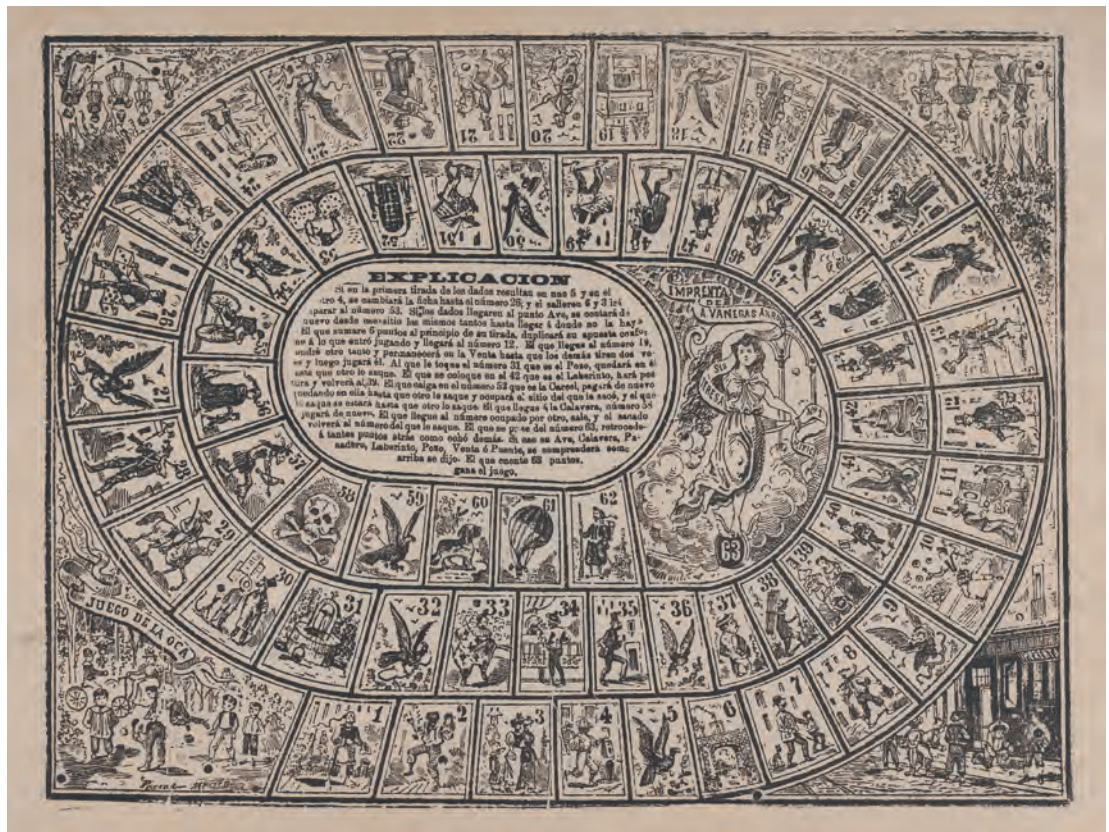 EXPLICACION
en la primera tirada de los dados resultan en uno 5 y en el
4, se cambiará la ficha hasta el número 26; y si salieren 6 y 3 irá
parar al número 53. Si los dados llegaren al punto Ave, se contará de
nuevo desde ese sitio los mismos tantos hasta llegar á donde no la hay
El que sumare 6 puntos al principio de su tirada, duplicará su apuesta
á lo que entró jugando y llegará al número 12. El que llegue al número 19,
otro tanto y permanecerá en la Venta hasta que los demás tiren dos
y luego jugará él. Al que le toque el número 31 que es el Pozo, quedará en
que otro lo saque. El que se coloque en el 42 que es el Laberinto, hará
y volverá al 39. El que caiga en el número 52 que es la Carcel, pagará de nuevo
quedando en ella hasta que otro le saque y ocupará el sitio del que la sacó, y el que
saque se estará hasta que otro lo saque. El que llegue á la Calavera, número 58
jugará de nuevo. El que llegue al número ocupado por otro, sale, y el
volverá al número del que le saque. El que se pase del número 63, retrocede
á tantos puntos atrás como echó demás. En eso su Ave, Calavera,
Laberinto, Pozo, Venta ó Puente, se comprenderá como
arriba se dijo. El que cuente 63 puntos,
gana el juego.
IMPRENTA
DE
A. VANEGAS
63
JUEGO DE LA OCA
1
2
3
4
5
6
7
8
9
10
11
14
16
17
18
19
20
21
22
23
24
25
26
28
29
30
31
32
33
34
35
36
37
38
39
40
41
42
44
45
46
47
48
49
50
51
52
53
54
58
59
60
61
62